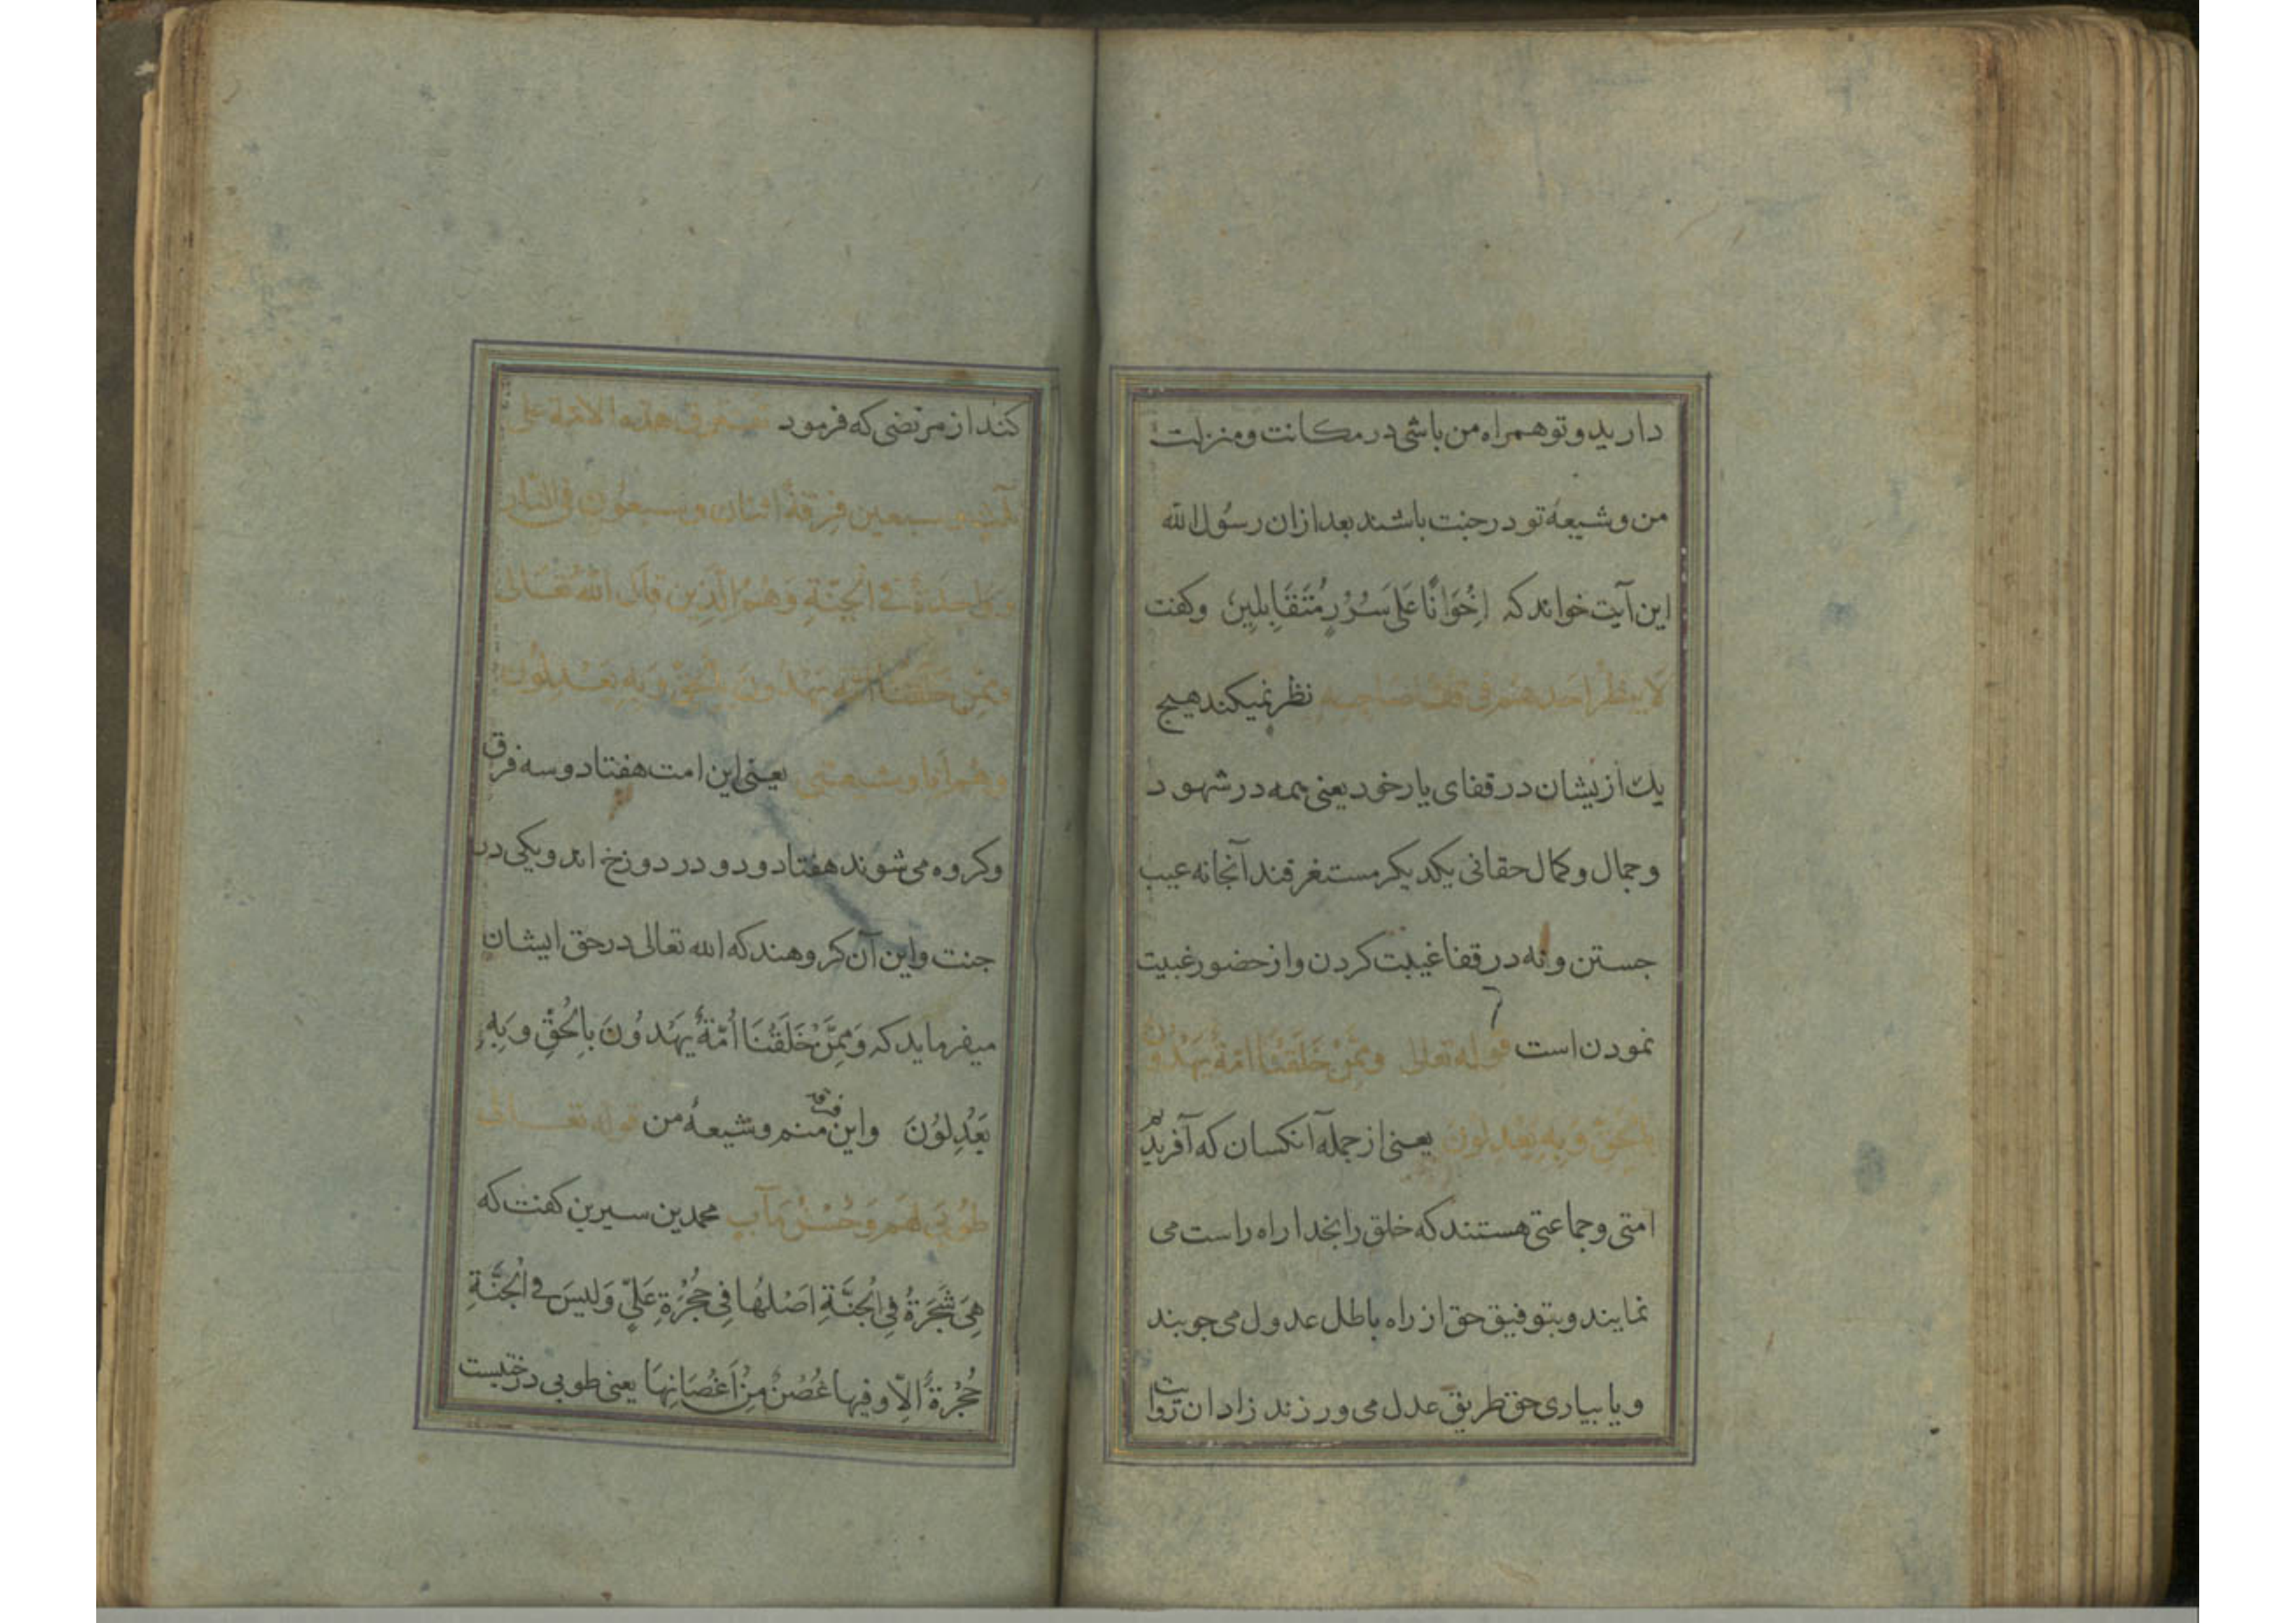 دارید و تو همراه من باشی در مکانت و منزلت
من و شیعهٔ تو در جنت باشند بعد از ان رسُول الله
این آیت خواند که اِخْوَانًا عَلَی سُرُرٍ مُتَقَابِلِینَ وکفت
لا ینظر احد هم فی قفا صاحبه نظر نمیکند هیچ
یك از یشان در قفای یار خود یعنی همه در شهود
و جمال و کمال حقانی یکدیکر مستغرقند آنجا نه عیب
جستن و نه در قفا غیبت کردن و از حضور غیبت
نمودن است قوله تعالی وَمِمَّنْ خَلَقْنَا اُمّةٌ یَهْدُونَ
بِالْحَقِّ وَبِهِ یَعْدِلُونَ یعنی از جمله آنکسان که آفریدیم
امتی و جماعتی هستند که خلق را بخدا راه راست می
نمایند و بتوفیق حق از راه باطل عدول می جویند
و یا بیاری حق طریق عدل می ورزند زادان روایت
کند از مرتضی که فرمود تفترق هذه الامّة علی
ثلث و سبعین فِرقةً اثنان و سبعُون فی النّار
و واحدَةٌ فی الْجَنّةِ وَهُمُ الَّذِین قَالَ اللهُ تَعَالی
وَمِمَّنْ خَلَقْنَا اُمّةٌ یَهْدُونَ بِالْحَقِّ وَبِهِ یَعْدِلُونَ
و هُم اَنا و شیعتی یعنی این امت هفتاد و سه فرق
وکروه می شوند هفتاد و دو در دوزخ اند و یکی در
جنت و این آن کروهند که الله تعالی در حق ایشان
میفرماید که وَمِمَّنْ خَلَقْنَا أُمّةٌ یَهْدُونَ بِالْحَقِّ وَبِهِ
یَعْدِلُونَ و این فرقه منم و شیعهٔ من قوله تعـالی
طُوبَی لَهُم وَحُسْنُ مَآب محمد بن سیرین کفت که
هِیَ شَجَرَةٌ فِی الْجَنَّةِ اَصْلُهَا فِی حُجْرَةِ عَلِیٍّ وَلَیْسَ فِی الْجَنَّةِ
حُجْرَةٌ اِلّا وَفِیهَا غُصْنٌ مِنْ اَغْصَانِهَا یعنی طوبی درختیست